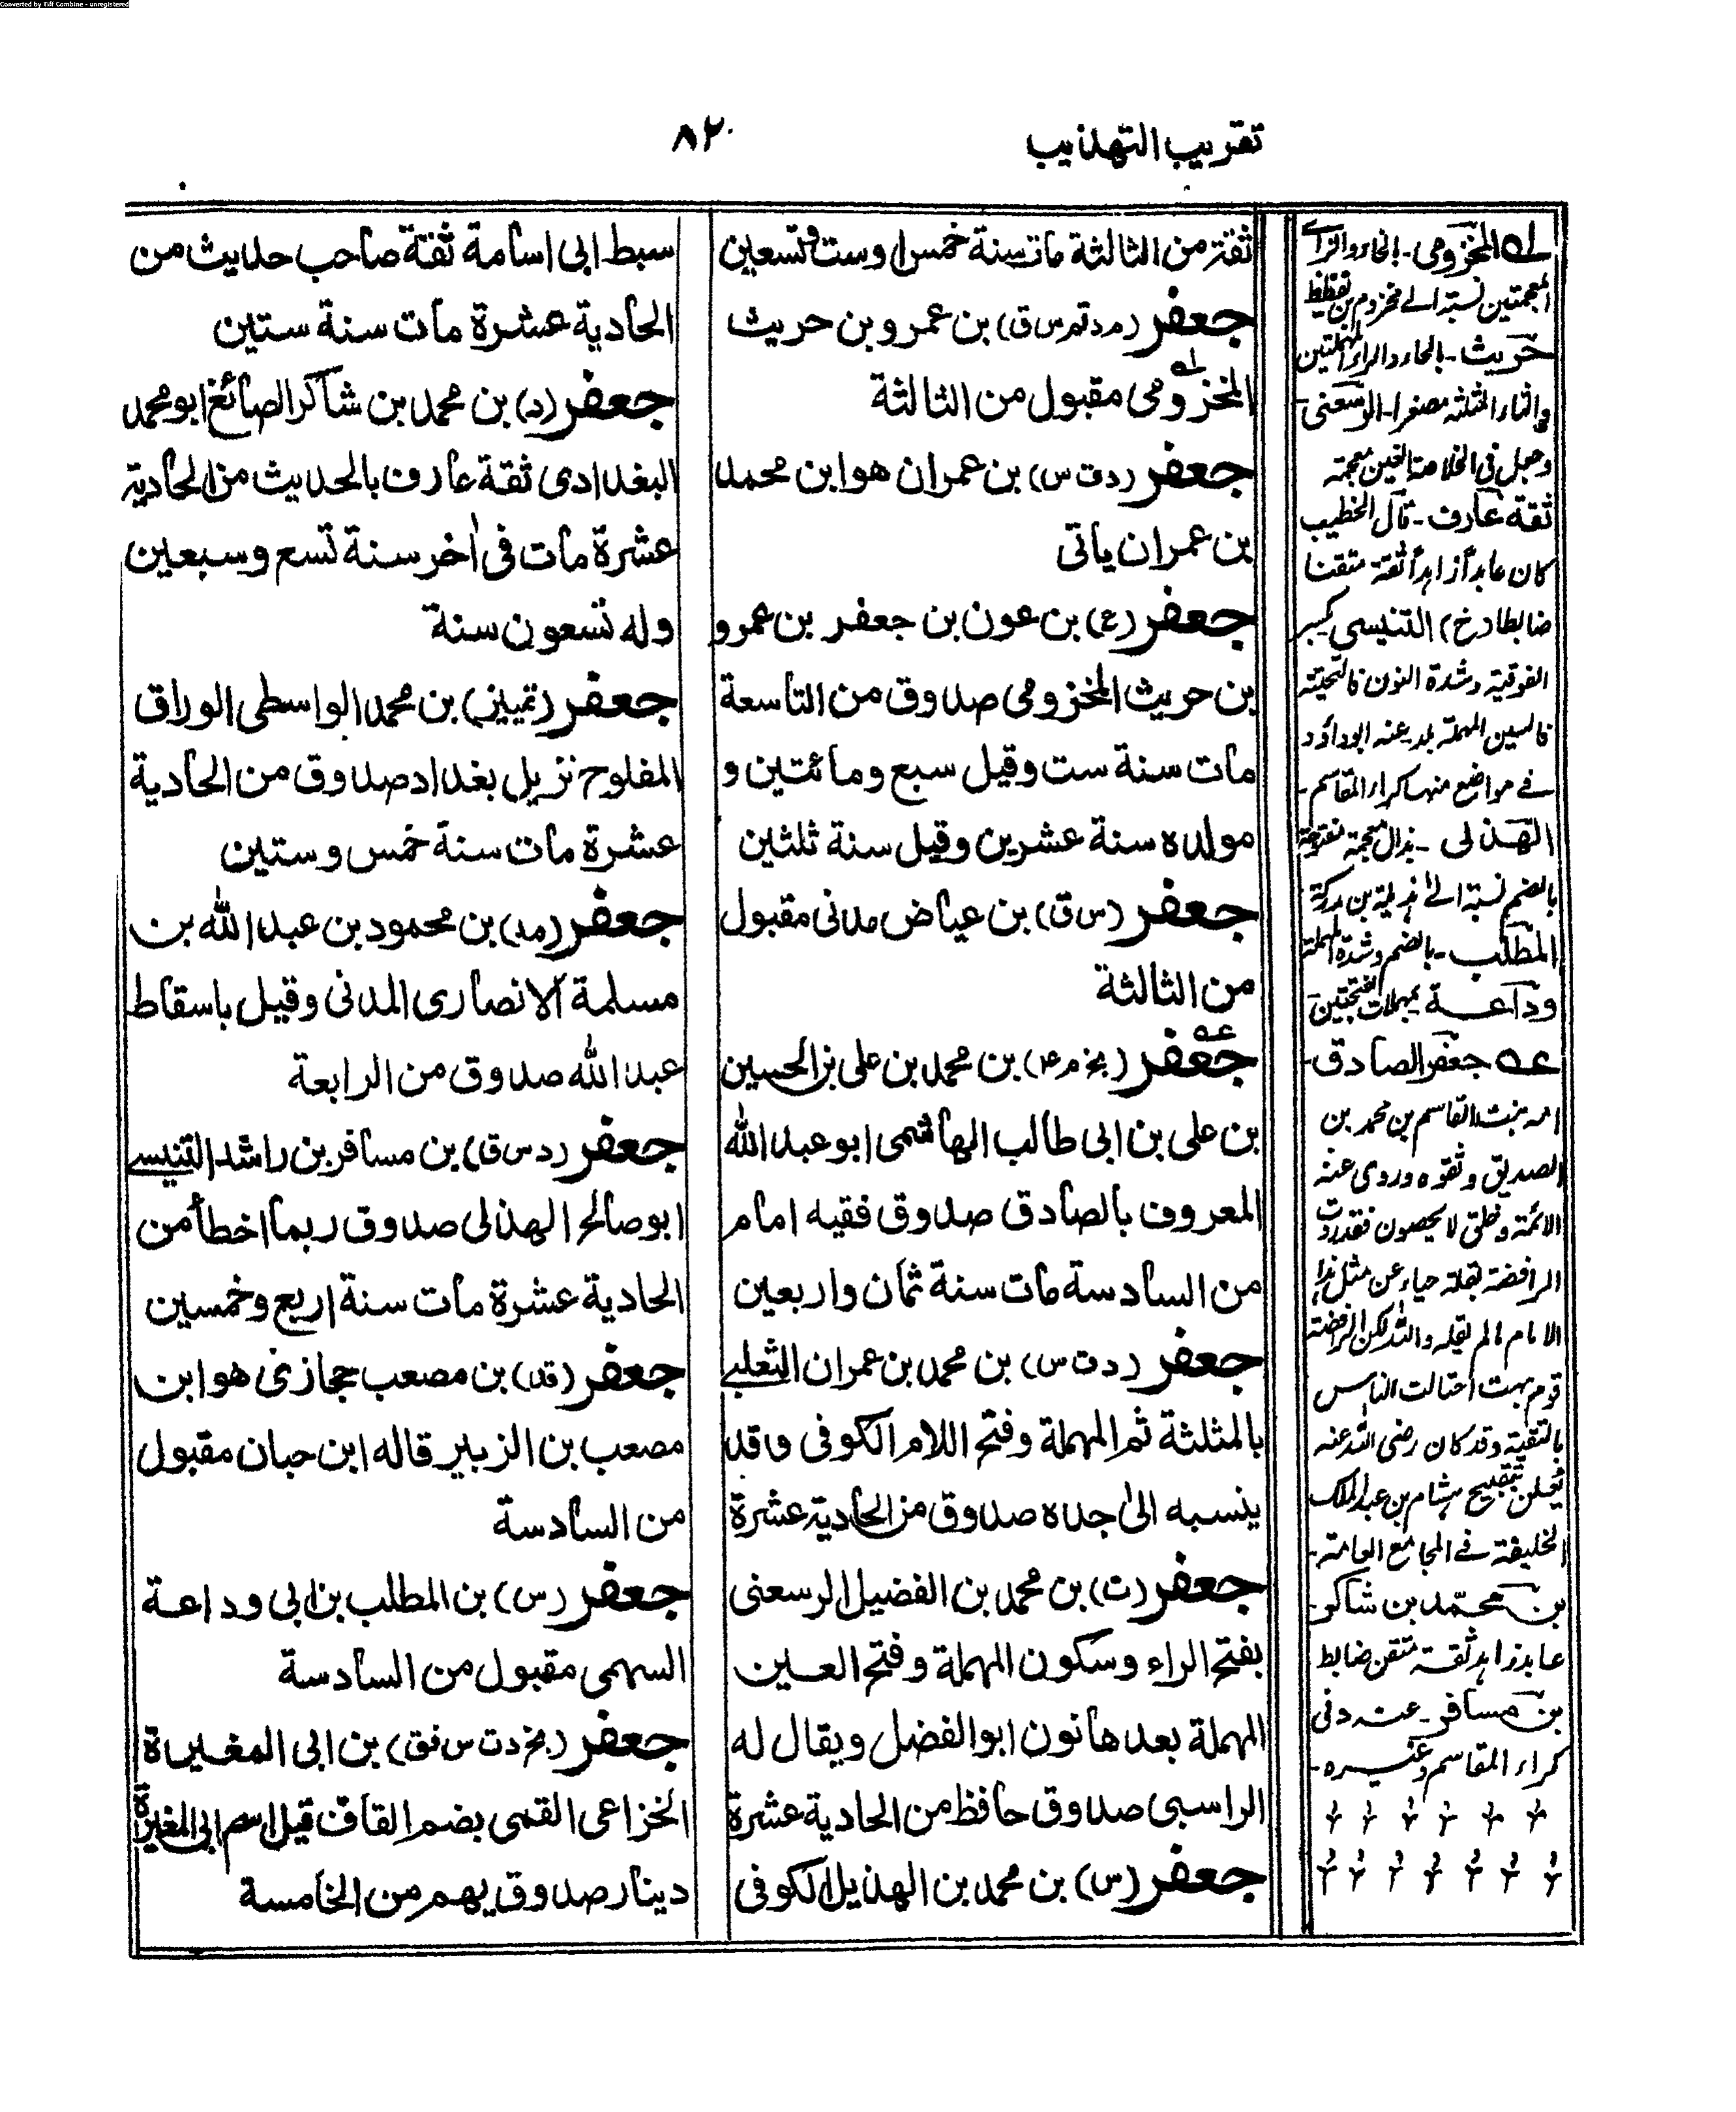 Converted by Tiff Combine - unregistered
تقريب التهذيب
٨٢
ثقة من الثالثة مات سنة خمس او ست وتسعين
جعفر (م د تم س ق) بن عمرو بن حريث
المخزومى مقبول من الثالثة
جعفر (د ت س) بن عمران هو ابن محمد
بن عمران ياتى
جعفر (ع) بن عون بن جعفر بن عمرو
بن حريث المخزومى صدوق من التاسعة
مات سنة ست وقيل سبع ومائتين و
مولده سنة عشرين وقيل سنة ثلثين
جعفر (س ق) بن عياض مدنى مقبول
من الثالثة
جعفر (بخ م ٤) بن محمد بن على بن الحسين
بن على بن ابى طالب الهاشمى ابو عبد الله
المعروف بالصادق صدوق فقيه امام
من السادسة مات سنة ثمان واربعين
جعفر (د ت س) بن محمد بن عمران الثعلبے
بالمثلثة ثم المهملة وفتح اللام الكوفى وقد
ينسبه الى جده صدوق من الحادية عشرة
جعفر (ت) بن محمد بن الفضيل الرسعنى
بفتح الراء وسكون المهملة وفتح العين
المهملة بعدها نون ابو الفضل ويقال له
الراسبى صدوق حافظ من الحادية عشرة
جعفر (س) بن محمد بن الهذيل الكوفى
سبط ابى اسامة ثقة صاحب حديث من
الحادية عشرة مات سنة ستين
جعفر (د) بن محمد بن شاكر الصائغ ابو محمد
البغدادى ثقة عارف بالحديث من الحادية
عشرة مات فى اخر سنة تسع وسبعين
وله تسعون سنة
جعفر (تمييز) بن محمد الواسطى الوراق
المفلوح نزيل بغداد صدوق من الحادية
عشرة مات سنة خمس وستين
جعفر (مد) بن محمود بن عبد الله بن
مسلمة الانصارى المدنى وقيل باسقاط
عبد الله صدوق من الرابعة
جعفر (د س ق) بن مسافر بن راشد التنيسے
ابو صالح الهذلى صدوق ربما اخطأ من
الحادية عشرة مات سنة اربع وخمسين
جعفر (قد) بن مصعب حجازى هو ابن
مصعب بن الزبير قاله ابن حبان مقبول
من السادسة
جعفر (س) بن المطلب بن ابى وداعة
السهمى مقبول من السادسة
جعفر (بخ د ت س فق) بن ابى المغيرة
الخزاعى القمى بضم القاف قيل اسم ابى المغيرة
دينار صدوق يهم من الخامسة
له المخزومى - بالخاء والزاے
المعجمتين نسبة الے مخزوم بن يقظة
حريث - بالحاء والراء المهملتين
والثاء المثلثة مصغرا - الرسعنى -
وجعل فى الخلاصة الغين معجمة
ثقة عارف - قال الخطيب
كان عابدا زاهدا ثقة متقنا
ضابطا (خ) التنيسى بكسر
الفوقية وشدة النون فالتحتية
فالسين المهملة بلد عنه ابو داؤد
فے مواضع منها كراء المقاسم -
الهذلى - بذال معجمة مفتوحة
بالضم نسبة الى هذيل بن مدركة
المطلب - بالضم وشدة المهملة
وداعة بمهملات بفتحتين
عه جعفر الصادق -
امه بنت القاسم بن محمد بن
الصديق وثقوه وروى عنه
الائمة وخلق لا يحصون فقد روت
الرافضة نقلة حياء عن مثل هذا
الامام ما لم يقله والله لكن الرافضة
قوم بهت احتالت الناس
بالتقية وقد كان رضى الله عنه
يعلن بتقبيح هشام بن عبد الملك
الخليفة فے المجامع العامة -
بن محمد بن شاكر -
عابد زاهد ثقة متقن ضابط
بن مسافر - عنه د فى
كراء المقاسم وغيره -